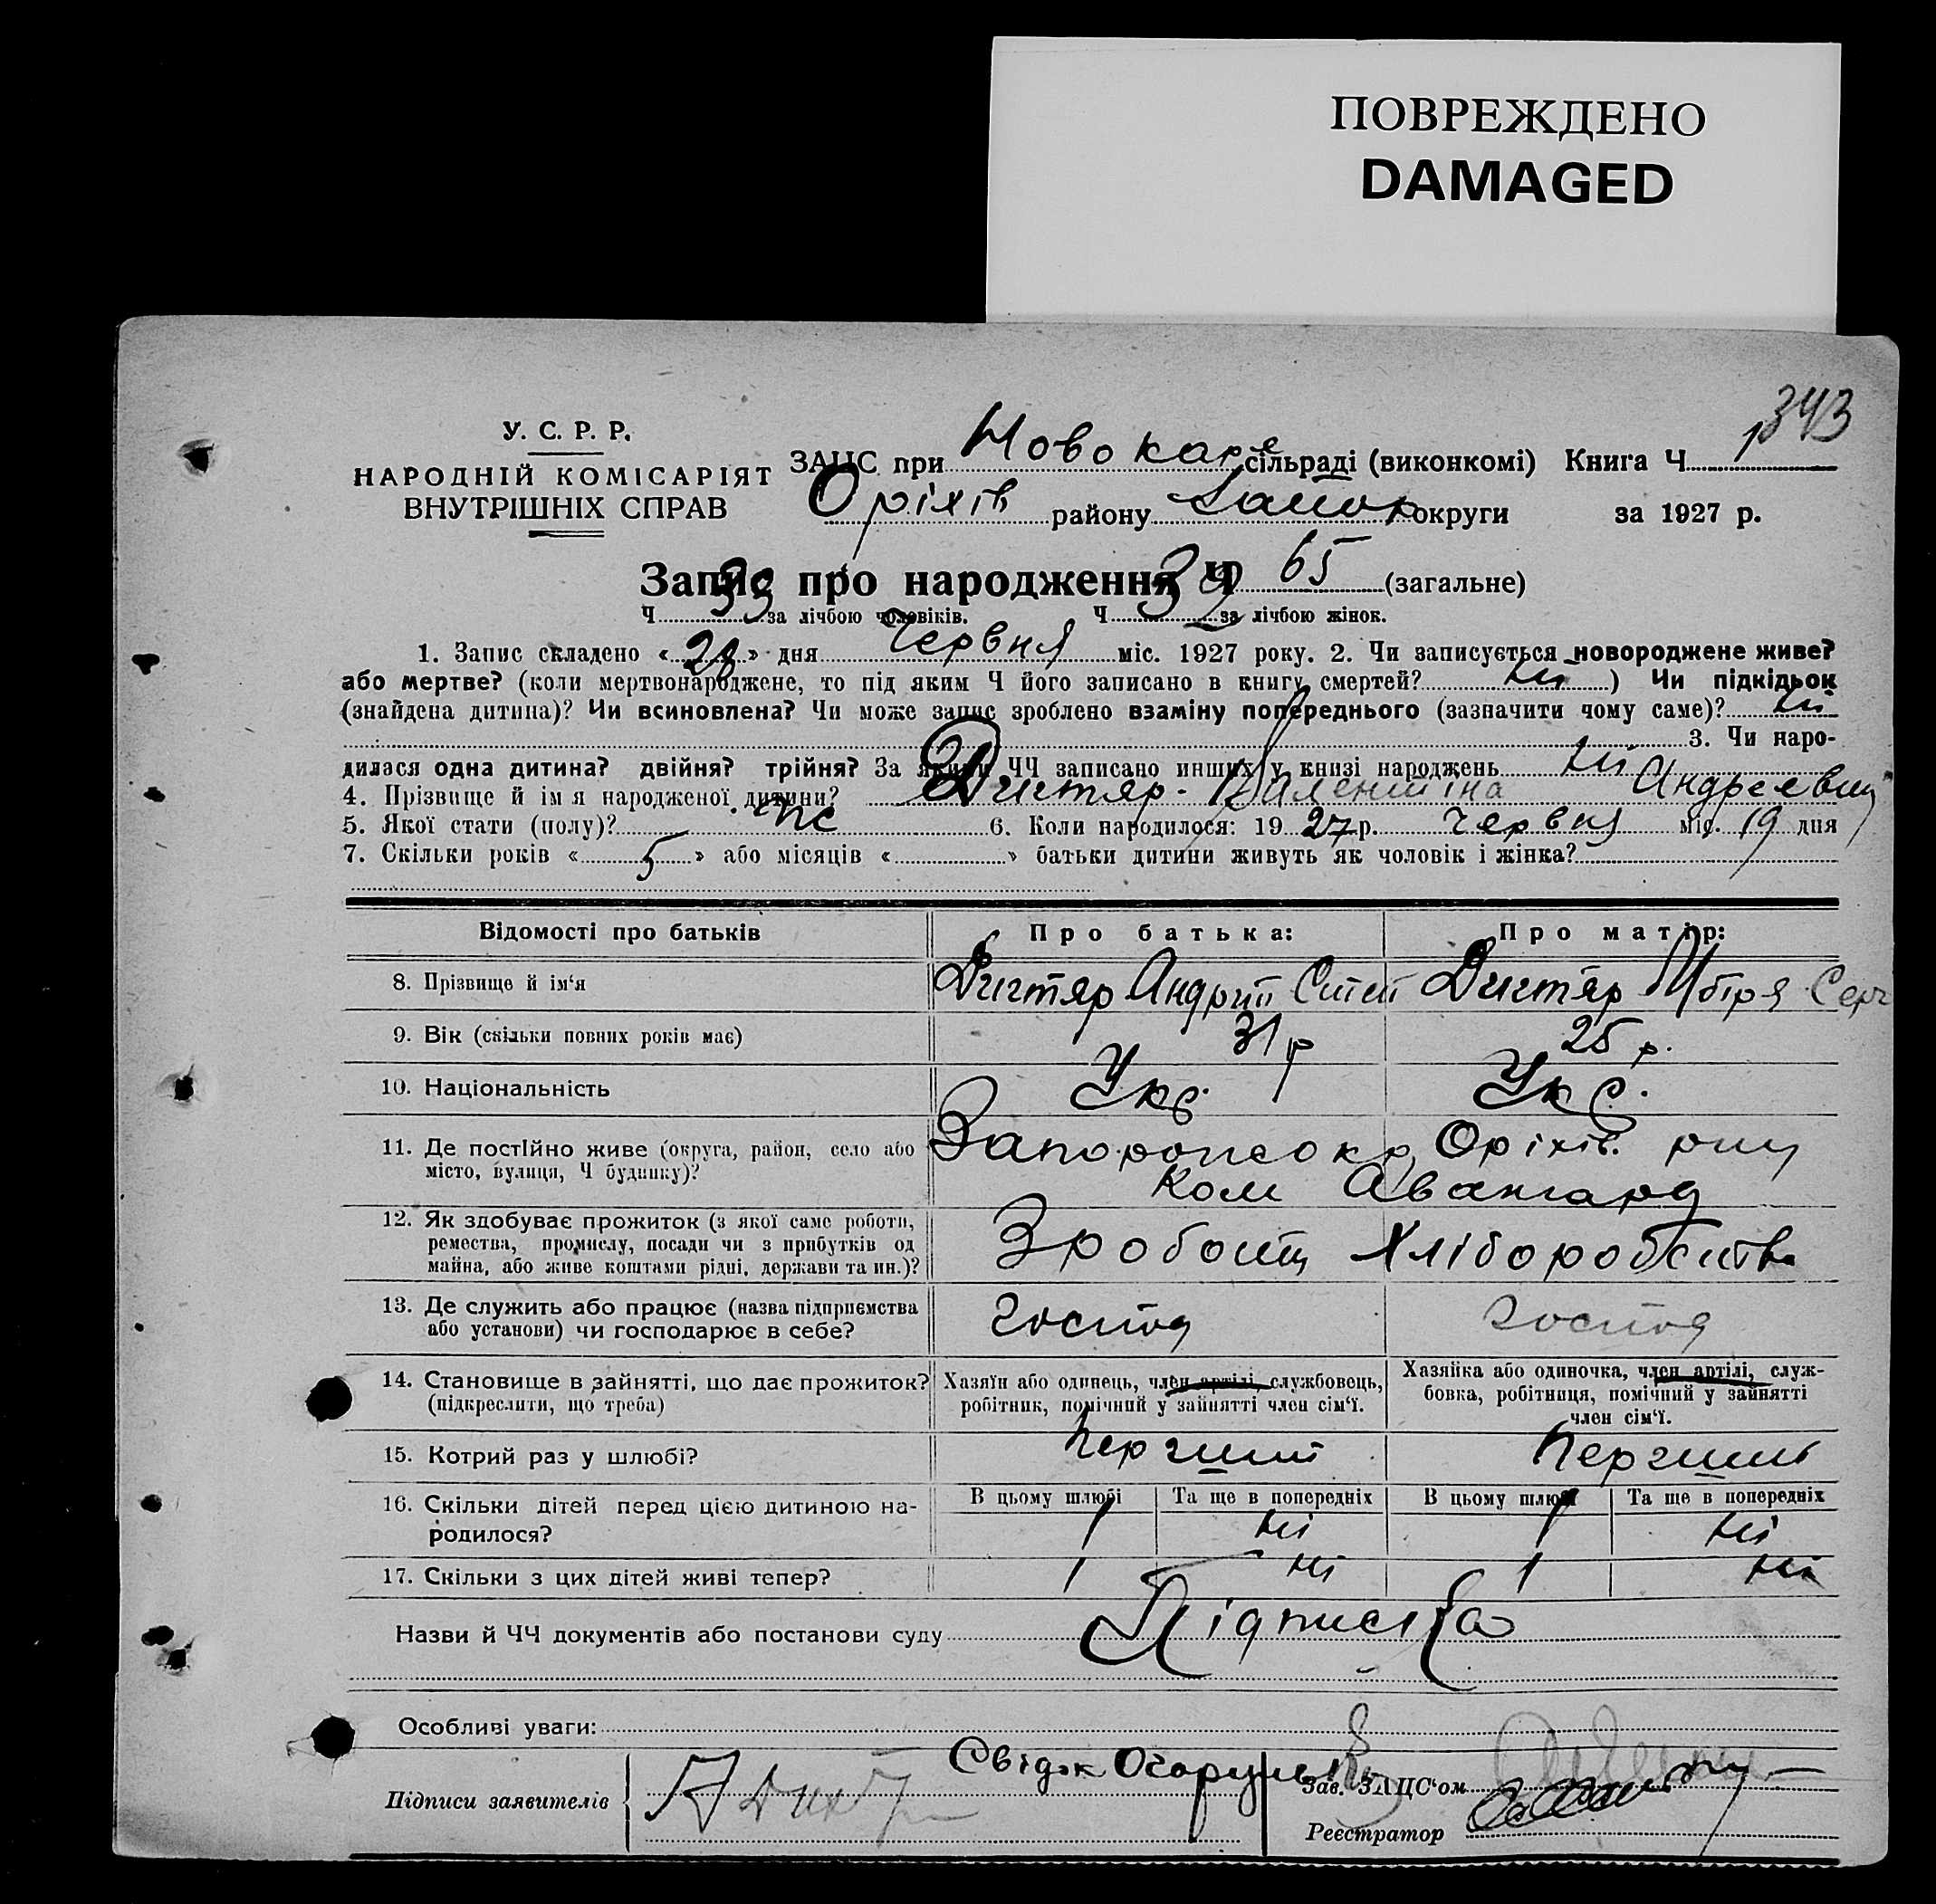 ПОВРЕЖДЕНО
DAMAGED
343
У. С. Р. Р.
НАРОДНІЙ КОМІСАРІЯТ
ВНУТРІШНІХ СПРАВ
ЗАЦС при Ново каре сільраді (виконкомі) Книга Ч 1
Оріхів району Запор округи за 1927 р.
Запис про народження Ч 65 (загальне)
Ч 33 за лічбою чоловіків. Ч 32 за лічбою жінок.
1. Запис складено « 28 » дня Червня міс. 1927 року. 2. Чи записується новороджене живе?
або мертве? (коли мертвонароджене, то під яким Ч його записано в книгу смертей? ні ) Чи підкідьок
(знайдена дитина)? Чи всиновлена? Чи може запис зроблено взаміну попереднього (зазначити чому саме)? ні
3. Чи наро-
дилася одна дитина? двійня? трійня? За якими ЧЧ записано инших у книзі народжень ні
4. Прізвище й ім я народженої дитини? Дихтяр Валентіна Андреевни
5. Якої стати (полу)? 6. Коли народилося: 19 27 р. червня міс. 19 дня
7. Скільки років « 5 » або місяців « » батьки дитини живуть як чоловік і жінка?
Відомості про батьків Про батька: Про матір:
8. Прізвище й ім‘я Дихтяр Андрій Степ Дихтяр
9. Вік (скільки повних років має) 31 р 25 р.
10. Національність Укр. Укр.
11. Де постійно живе (округа, район, село або
місто, вулиця, Ч будинку)?
Запорожсокр Оріхів. рну
Ком Авангард
12. Як здобуває прожиток (з якої саме роботи,
ремества, промислу, посади чи з прибутків од
майна, або живе коштами рідні, держави та ин.)?
Зроботи Хліборобства
13. Де служить або працює (назва підприємства
або установи) чи господарює в себе?
господ господ
14. Становище в зайнятті, що дає прожиток?
(підкреслити, що треба)
Хазяїн або одинець, член артілі, службовець,
робітник, помічний у зайнятті член сім‘ї.
Хазяйка або одиночка, член артілі, служ-
бовка, робітниця, помічний у зайнятті
член сім‘ї.
15. Котрий раз у шлюбі? Перший Перший
16. Скільки дітей перед цією дитиною на-
родилося?
В цьому шлюбі Та ще в попередніх В цьому шлюбі Та ще в попередніх
1 ні 1 ні
17. Скільки з цих дітей живі тепер? 1 ні 1 ні
Назви й ЧЧ документів або постанови суду Підписка
Особливі уваги:
Підписи заявителів
Свідок
Зав. ЗАЦС‘ом
Реєстратор